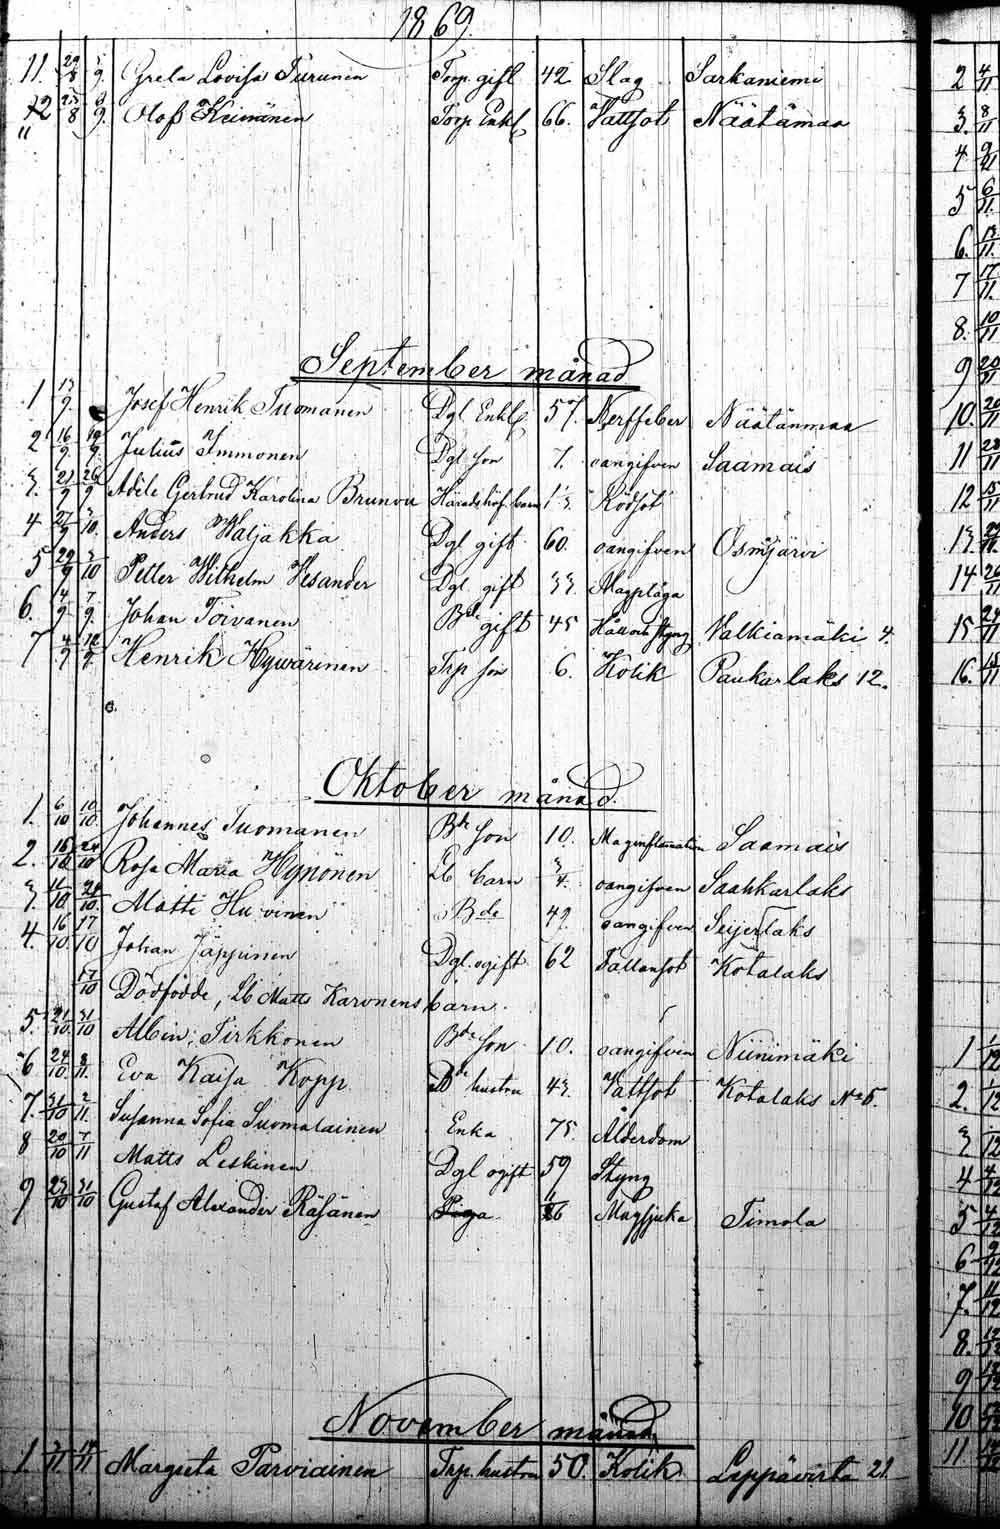 1869.
11. 29/8 5/9. Grela Lovisa Turunen Torp. gift 42 Slag Sarkaniemi
12 25/8 9. Olof Keinänen Torp Enkl 66. Vattsot Näätämaa
11
September månad
1 13/9. Josef Henrik Tuomanen Dgl. Enkl 57. Nerffeber Näätänmaa
2 16/9. 19/9. Julius Immonen Dgl son 7. oangifven Saamais
3. 21/9 26/9 Adéle Gertrud Karolina Brunou Häradshöf. barn Rödsot
4 27/9 3/10. Anders Waljakka Dgl gift 60. oangifven Osmajärvi
5 29/9 3/10 Petter Wilhelm Vesander Dgl gift 33. Magplåga
6. 4/9 7/9. Johan Toivanen Bde gift 45 Håll och styng Valkiamäki 4.
7 4/9 12/9. Henrik Hyvärinen Trp son 6. Kolik Paukarlaks 12.
Oktober månad.
1. 6/10 10/10. Johannes Tuomanen Bde son 10. Maginflamation Saamais
2. 16/10 24/10 Rosa Maria Hynönen Lb barn 3/4. oangifven Saahkarlaks
3. 11/10 24/10. Matti Huvinen Bde 49. oangifven Seijerlaks
4. 16/10. 17/10 Johan Jäppinen Dgl. ogift 62 Fallansot Kotalaks
17/10 Dödfödde, Lb Matts Karvnens barn.
5. 21/10. 31/10 Albin Tirkkonen Bde son 10. oangifven Niinimäki
6 24/10. 8/11. Eva Kaisa Kopp Bde hustru 43. Vattsot Kotalaks No 5.
7. 31/10 2/11. Susanna Sofia Suomalainen Enka 75. Ålderdom
8 20/10 7/11 Matts Leskinen Dgl ogift 59 Styng
9 23/10 31/10 Gustaf Alexander Räsänen Piga 11 Magsjuka Timola
November månad
1. 3/11. 14/11 Margreta Parviainen Trp. hustru 50. Kolik Leppävirta 21
2 4/11
3. 8/11
4 9/11
5 6/11.
6. 13/11.
7 17/11.
8. 10/11
9 20/11
10. 20/11
11 28/11
12 15/11
13.
14 26/11
15 24/11
16. 15/11
1 1/12
2. 1/12
3 /12
4 4/12
5 4/12
6 9/12
7. 11/12
8.
9
10
11